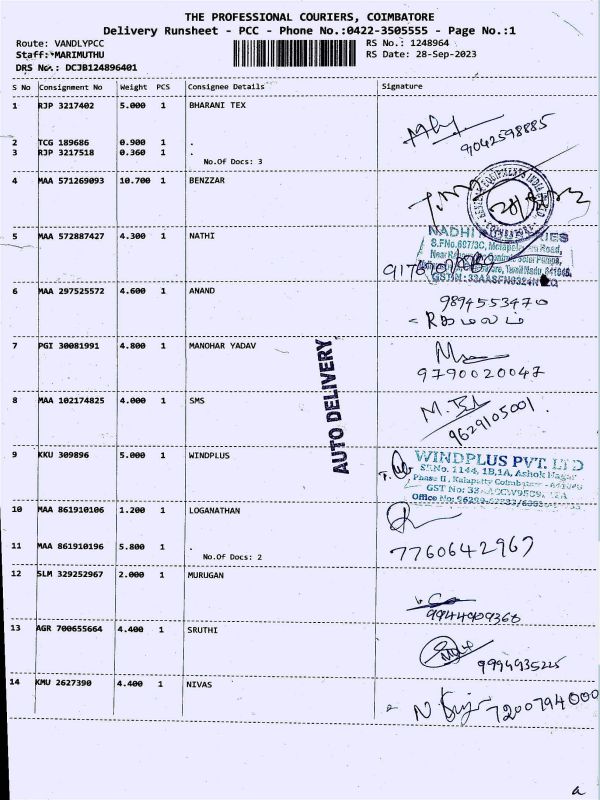 THE PROFESSIONAL COURIERS, COIMBATORE
Delivery Runsheet - PCC - Phone No.:0422-3505555 - Page No.:1
Route: VANDLYPCC RS No.: 1248964
Staff: MARIMUTHU RS Date: 28-Sep-2023
DRS No.: DCJB124896401
S No Consignment No Weight PCS Consignee Details Signature
1 RJP 3217402 5.000 1 BHARANI TEX
9042598885
2 TCG 189686 0.900 1 .
3 RJP 3217518 0.360 1 .
No.Of Docs: 3
4 MAA 571269093 10.700 1 BENZZAR
5 MAA 572887427 4.300 1 NATHI
NADHI
S.F.No.607/3C,
6 MAA 297525572 4.600 1 ANAND
9894553470
7 PGI 30081991 4.800 1 MANOHAR YADAV
9790020047
AUTO DELIVERY
8 MAA 102174825 4.000 1 SMS
9629105001
9 KKU 309896 5.000 1 WINDPLUS
WINDPLUS PVT. LTD
S.F.No. 1144, 1B,1A, Ashok Nagar
Phase II, Kalapatty Coimbatore
GST No: 33
Office No:
10 MAA 861910106 1.200 1 LOGANATHAN
11 MAA 861910196 5.800 1 .
No.Of Docs: 2
7760642967
12 SLM 329252967 2.000 1 MURUGAN
9944909368
13 AGR 700655664 4.400 1 SRUTHI
9994935225
14 KMU 2627390 4.400 1 NIVAS
7200794000
a